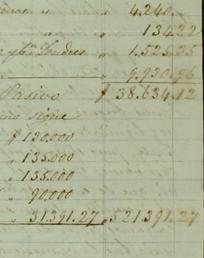 4.240.
134.22
Londres 1.525.35
9.930.96
Pasivo $ 38.634.12
sigue
$ 130.000
" 135.000
" 135.000
" 90.000
" 31.391.27 " 521.391.27